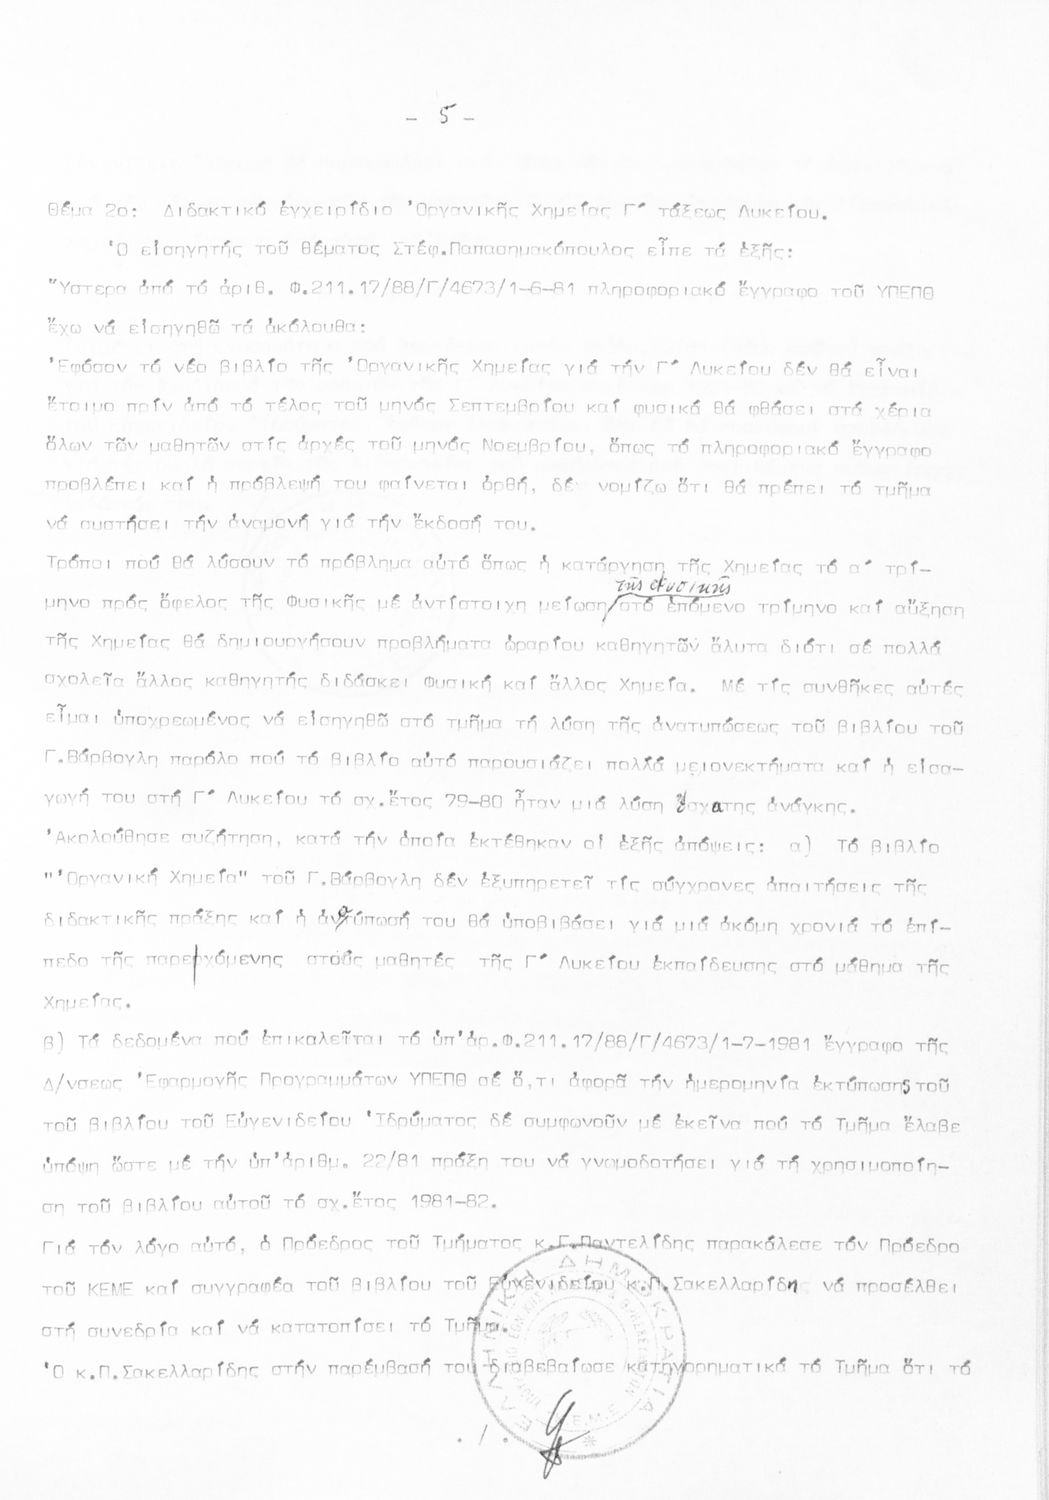 - 5 -
Θέμα 2ο: Διδακτικό ἐγχειρίδιο Ὀργανικῆς Χημείας Γ΄ τάξεως Λυκείου.
Ὁ εἰσηγητής τοῦ θέματος Στέφ.Παπασημακόπουλος εἶπε τά ἑξῆς:
Ὕστερα ἀπό τό ἀριθ. Φ.211.17/88/Γ/4673/1-6-81 πληροφοριακό ἔγγραφο τοῦ ΥΠΕΠΘ
ἔχω νά εἰσηγηθῶ τά ἀκόλουθα:
Ἐφόσον τό νέο βιβλίο τῆς Ὀργανικῆς Χημείας γιά τήν Γ΄ Λυκείου δέν θά εἶναι
ἕτοιμο πρίν ἀπό τό τέλος τοῦ μηνός Σεπτεμβρίου καί φυσικά θά φθάσει στά χέρια
ὅλων τῶν μαθητῶν στίς ἀρχές τοῦ μηνός Νοεμβρίου, ὅπως τό πληροφοριακό ἔγγραφο
προβλέπει καί ἡ πρόβλεψή του φαίνεται ὀρθή, δέ νομίζω ὅτι θά πρέπει τό τμῆμα
νά συστήσει τήν ἀναμονή γιά τήν ἔκδοσή του.
Τρόποι πού θά λύσουν τό πρόβλημα αὐτό ὅπως ἡ κατάργηση τῆς Χημείας τό α΄ τρί-
μηνο πρός ὄφελος τῆς Φυσικῆς μέ ἀντίστοιχη μείωση τῆς Φυσικῆς στό ἑπόμενο τρίμηνο καί αὔξηση
τῆς Χημείας θά δημιουργήσουν προβλήματα ὡραρίου καθηγητῶν ἄλυτα διότι σέ πολλά
σχολεῖα ἄλλος καθηγητής διδάσκει Φυσική καί ἄλλος Χημεία. Μέ τίς συνθῆκες αὐτές
εἶμαι ὑποχρεωμένος νά εἰσηγηθῶ στό τμῆμα τή λύση τῆς ἀνατυπώσεως τοῦ βιβλίου τοῦ
Γ.Βάρβογλη παρόλο πού τό βιβλίο αὐτό παρουσιάζει πολλά μειονεκτήματα καί ἡ εἰσα-
γωγή του στή Γ΄ Λυκείου τό σχ.ἔτος 79-80 ἦταν μιά λύση ἔσχατης ἀνάγκης.
Ἀκολούθησε συζήτηση, κατά τήν ὁποία ἐκτέθηκαν οἱ ἑξῆς ἀπόψεις: α) Τό βιβλίο
"Ὀργανική Χημεία" τοῦ Γ.Βάρβογλη δέν ἐξυπηρετεῖ τίς σύγχρονες ἀπαιτήσεις τῆς
διδακτικῆς πράξης καί ἡ ἀνατύπωσή του θά ὑποβιβάσει γιά μιά ἀκόμη χρονιά τό ἐπί-
πεδο τῆς παρεχόμενης στούς μαθητές τῆς Γ΄ Λυκείου ἐκπαίδευσης στό μάθημα τῆς
Χημείας.
β) Τά δεδομένα πού ἐπικαλεῖται τό ὑπ'ἀρ.Φ.211.17/88/Γ/4673/1-7-1981 ἔγγραφο τῆς
Δ/νσεως Ἐφαρμογῆς Προγραμμάτων ΥΠΕΠΘ σέ ὅ,τι ἀφορᾶ τήν ἡμερομηνία ἐκτύπωσης τοῦ
τοῦ βιβλίου τοῦ Εὐγενιδείου Ἱδρύματος δέ συμφωνοῦν μέ ἐκεῖνα πού τό Τμῆμα ἔλαβε
ὑπόψη ὥστε μέ τήν ὑπ'ἀριθμ. 22/81 πράξη του νά γνωμοδοτήσει γιά τή χρησιμοποίη-
ση τοῦ βιβλίου αὐτοῦ τό σχ.ἔτος 1981-82.
Γιά τόν λόγο αὐτό, ὁ Πρόεδρος τοῦ Τμήματος κ.Γ.Παντελίδης παρακάλεσε τόν Πρόεδρο
τοῦ ΚΕΜΕ καί συγγραφέα τοῦ βιβλίου τοῦ Εὐγενιδείου κ.Π.Σακελλαρίδη νά προσέλθει
στή συνεδρία καί νά κατατοπίσει τό Τμῆμα.
Ὁ κ.Π.Σακελλαρίδης στήν παρέμβασή του διαβεβαίωσε κατηγορηματικά τό Τμῆμα ὅτι τό
ΕΛΛΗΝΙΚΗ ΔΗΜΟΚΡΑΤΙΑ
Κ.Ε.Μ.Ε.
./.